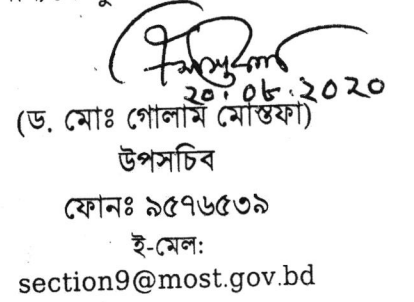 ২০.০৮.২০২০
(ড. মোঃ গোলাম মোস্তফা)
উপসচিব
ফোনঃ ৯৫৭৬৫৩৯
ই-মেল:
section9@most.gov.bd